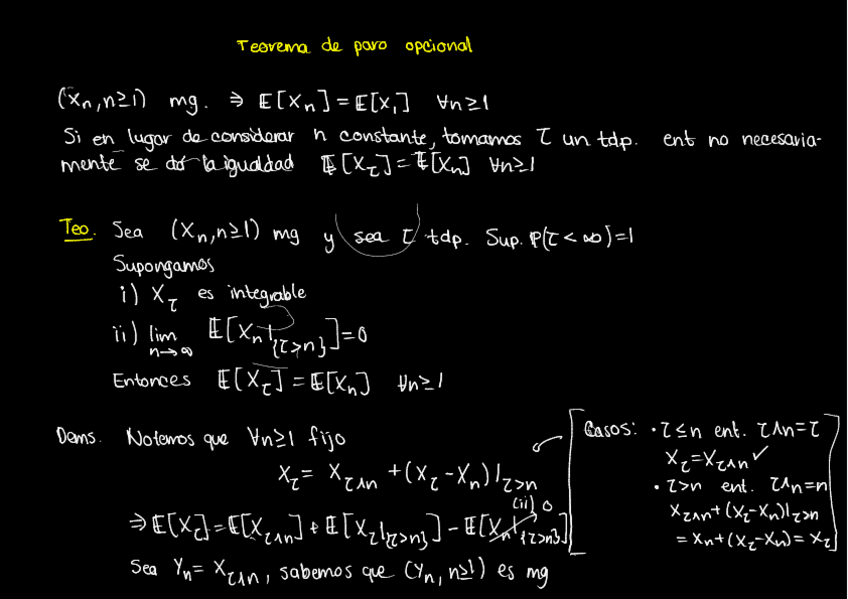 Teorema de paro opcional
(Xn, n≥1) mg. ⇒ E[Xn] = E[X1] ∀n≥1
Si en lugar de considerar n constante, tomamos τ un tdp. ent no necesaria-
mente se dá la igualdad E[Xτ] = E[Xn] ∀n≥1
Teo. Sea (Xn, n≥1) mg y sea τ tdp. Sup. P(τ < ∞) = 1
Supongamos
i) Xτ es integrable
ii) lim n→∞ E[Xn 1{τ>n}] = 0
Entonces E[Xτ] = E[Xn] ∀n≥1
Dems. Notemos que ∀n≥1 fijo
Xτ = Xτ∧n + (Xτ - Xn) 1τ>n
⇒ E[Xτ] = E[Xτ∧n] + E[Xτ 1{τ>n}] - E[Xn 1{τ>n}] (ii) 0
Sea Yn = Xτ∧n, sabemos que (Yn, n≥1) es mg
Casos: • τ ≤ n ent. τ∧n = τ
Xτ = Xτ∧n ✓
• τ > n ent. τ∧n = n
Xτ∧n + (Xτ - Xn) 1τ>n
= Xn + (Xτ - Xn) = Xτ